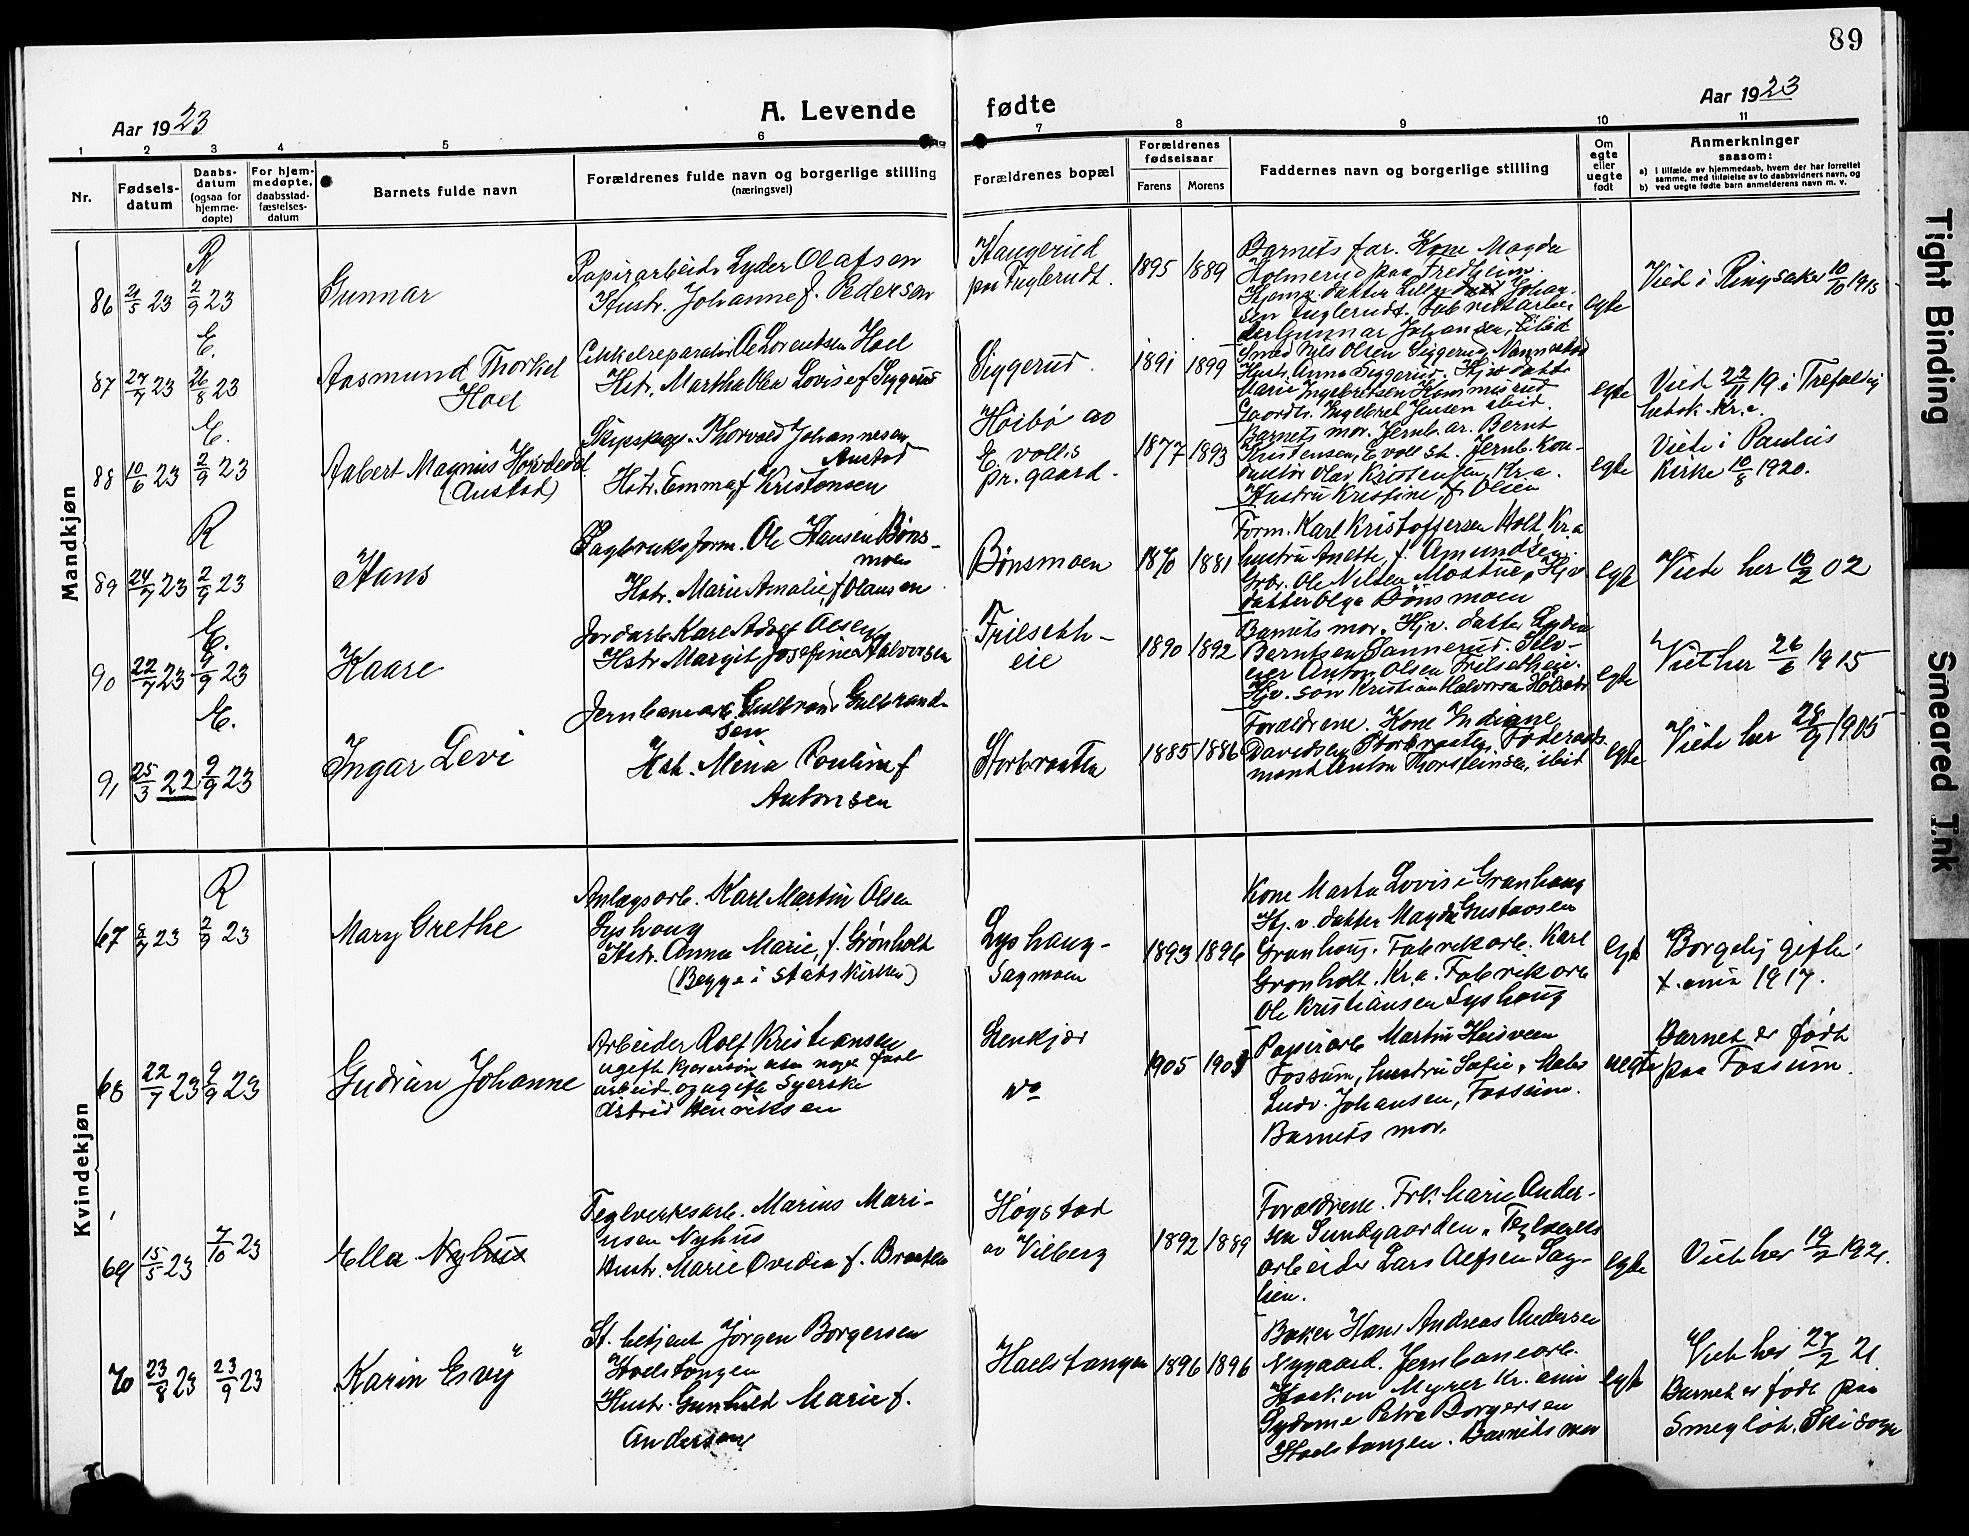 89
Aar 1923
A. Levende fødte
Aar 1923
1 2 3 4 5 6 7 8 9 10 11
Nr.
Fødsels-
datum
Daabs-
datum
(ogsaa for
hjemme-
døpte)
For hjem-
medøpte,
daabsstad-
fæstelses-
datum
Barnets fulde navn
Forældrenes fulde navn og borgerlige stilling
(næringsvei)
Forældrenes bopæl
Forældrenes
fødselsaar
Farens Morens
Faddernes navn og borgerlige stilling
Om
egte
eller
uegte
født
Anmerkninger
saasom:
a) i tilfælde av hjemmedaab, hvem der har forrettet
samme, med tilføielse av to daabsvidners navn, og
b) ved uegte fødte barn anmelderens navn m. v.
Mandkjøn
R
86 2/5 23 2/9 23
Gunnar
Papirarbeider Lyder Olafsen
Hustr. Johanne f. Pedersen
Haugerud
paa Fuglerudt.
1895 1889
Barnets far. Kone Magda
Holmerud paa Fredheim.
Hjemv. datter Lilly Johan-
sen Fuglerudt. Fabrikkarbei-
der Gunnar Johansen, ibid
egte
Vied i Ringsaker 10/10 1915
E.
87 27/7 23 26/8 23
Aasmund Thorkel
Hoel
Cykkelreparatør Ole Lorentsen Hoel
Hstr. Martha Lovise f. Siggerud
Siggerud.
1891 1899
Smed Nils Olsen Siggerud
Hustr. Anna Siggerud. Hjv. datt.
Marie Ingebretsen
Gaardbr. Ingebret Jensen ibid.
egte
Vied 22/11 19 i Trefoldig
hetsk. Kr.a.
E.
88 10/6 23 2/9 23
Aabert Magnus Hovdedal
(Austad)
Thorvald Johannesen
Austad
Hstr. Emma f. Kristensen
Høibø av
E volls
pr. gaard.
1877 1893
Barnets mor. Jernb. ar. Bernt
Kristensen, E voll st. Jernb. kon-
duktør Olav Kristensen, Kr.a.
Hustru Kristine, f. Olsen
egte
Viede i Paulus
Kirke 10/8 1920.
R
89 24/7 23 2/9 23
Hans
Sagbruksform. Ole Hansen Bøns-
moen
Hstr. Marie Amalie, f. Olausen
Bønsmoen
1870 1881
Form. Karl Kristoffersen Holt, Kr.a
hustru Anette, f. Amundsen.
Grbr. Ole Nilsen Mostue, Hjv.
datter Olga Bønsmoen
egte
Viede her 10/2 02
E.
90 22/7 23 9/9 23
Kaare
Jordarb. Karl Adolf Olsen
Hstr. Margit Josefine Halvorsen
Trilseth-
eie
1890 1892
Barnets mor. Hjv. datter Lydia
Berntsen Sannerud. Selv-
eier Anton Olsen Trilsetheie.
Hjv. søn Kristian Halvorsen
egte
Viet her 26/6 1915
E.
91 25/3 22 9/9 23
Ingar Levi
Jernbanearb. Gulbrand Gulbrand-
sen
Hst. Mina Pauline f.
Antonsen
Storbraaten
1885 1886
Forældrene. Kone Indiane
Davidsen Storbraaten. Føderaads-
mand Anton Thorsteinsen, ibid
egte
Viede her 28/9 1905
Kvindekjøn
R
67 8/7 23 2/9 23
Mary Grethe
Anlægsarb. Karl Martin Olsen
Lyshaug
Hstr. Anna Marie, f. Grønholt
(Begge i statskirken)
Lyshaug-
Sagmoen
1893 1896
Kone Marta Lovise Granhaug
Hj.v. datter Magda Gustavsen
Granhaug. Fabrikarb. Karl
Grønholt. Kr.a. Fabrikarb
Ole Kristiansen Lyshaug
egte
Borgelig gifte
X.ania 1917.
68 22/7 23 9/9 23
Gudrun Johanne
Arbeider Rolf Kristiansen
ugift uten noget fast
arbeid og ugift Syerske
Astrid Henriksen
Stenkjær
1905
Papirarb Martin
Fossum, hustru Sofie. Mats
Ludv. Johansen, Fossum.
Barnets mor.
uegte
Barnet er født
paa Fossum.
69 15/5 23 7/10 23
Ella Nyhus
Teglverksarb. Marius Mari-
usen Nyhus
Hustr. Marie Ovedia f. Braaten
Høgstad
av Vilberg
1892 1889
Forældrene. Frk. Marie Ander-
sen Sundgaarden. Teglverks
arbeider Lars Alfsen Sag-
lien.
egte
Viet her 19/2 1921.
70 23/8 23 23/9 23
Karin Esvy
St. betjent Jørgen Borgersen
Haelstangen
Hustr. Gunhild Marie f.
Andersen
Haelstangen
1896 1896
Baker Hans Andreas Andersen
Nygaard. Jernbanearb.
Haakon Myrer Kr.ania
Sydame Petra Borgersen
Haelstangen. Barnets mor
egte
Viet her 27/2 21.
Barnet er født paa
Ski sogn
Tight Binding
Smeared Ink